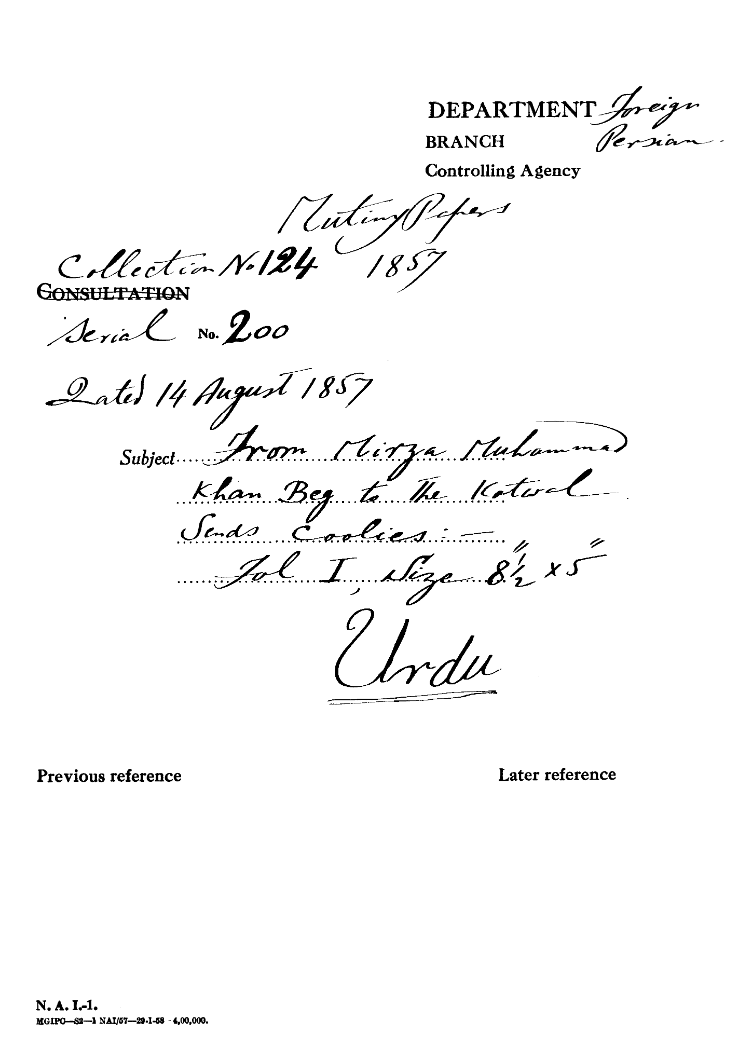 DEPARTMENT Foreign
BRANCH Persian
Controlling Agency
Mutiny Papers
Collection No 124 1857
CONSULTATION
Serial No. 200
Dated 14 August 1857
Subject From Mirza Muhammad
Khan Beg to the Kotwal
Sends Coolies :—
Fol I, Size 8½" x 5"
Urdu
Previous reference Later reference
N. A. I.-1.
MGIPC—S2—1 NAI/57—29-1-58 - 4,00,000.